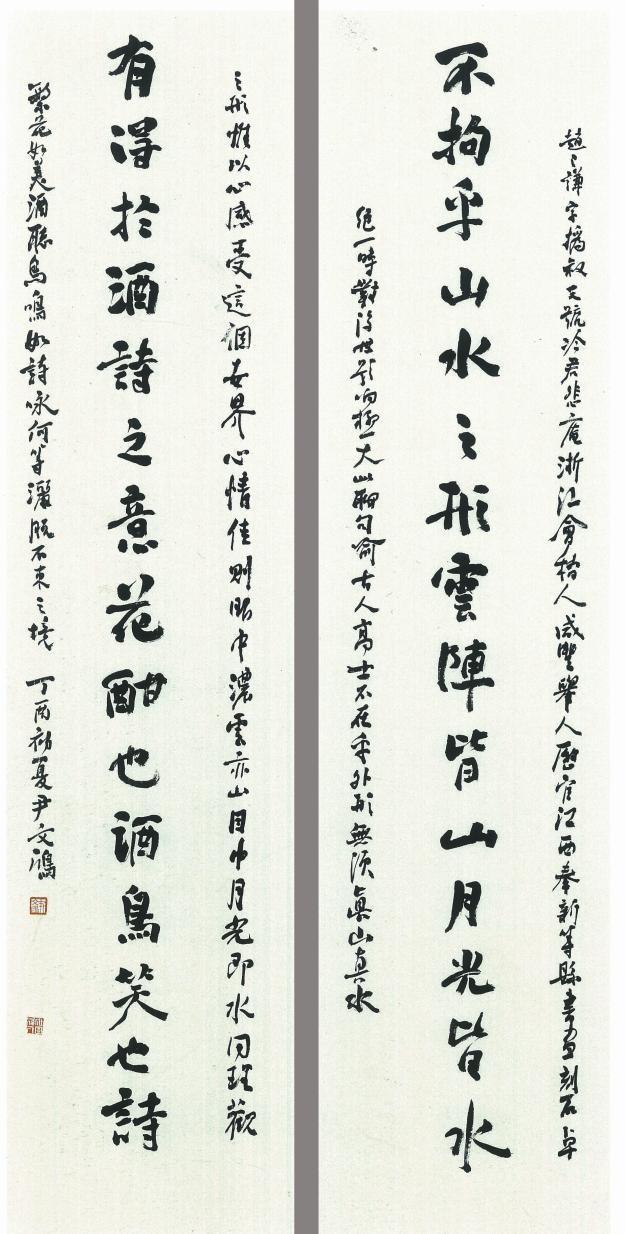 趙之謙字撝叔又號冷君悲庵浙江會稽人咸豐舉人歷官江西奉新等縣書畫刻石卓
不拘乎山水之形雲陣皆山月光皆水
絕一時對後世影响極大此聯句喻古人高士不在乎外形無須真山真水
之形惟以心感受這個世界心情佳則眼中濃雲亦山目中月光即水同理觀
有得於酒詩之意花酣也酒鳥笑也詩
繁花如美酒聽鳥鳴如詩咏何等灑脱不束之境 丁酉初夏尹文鴻